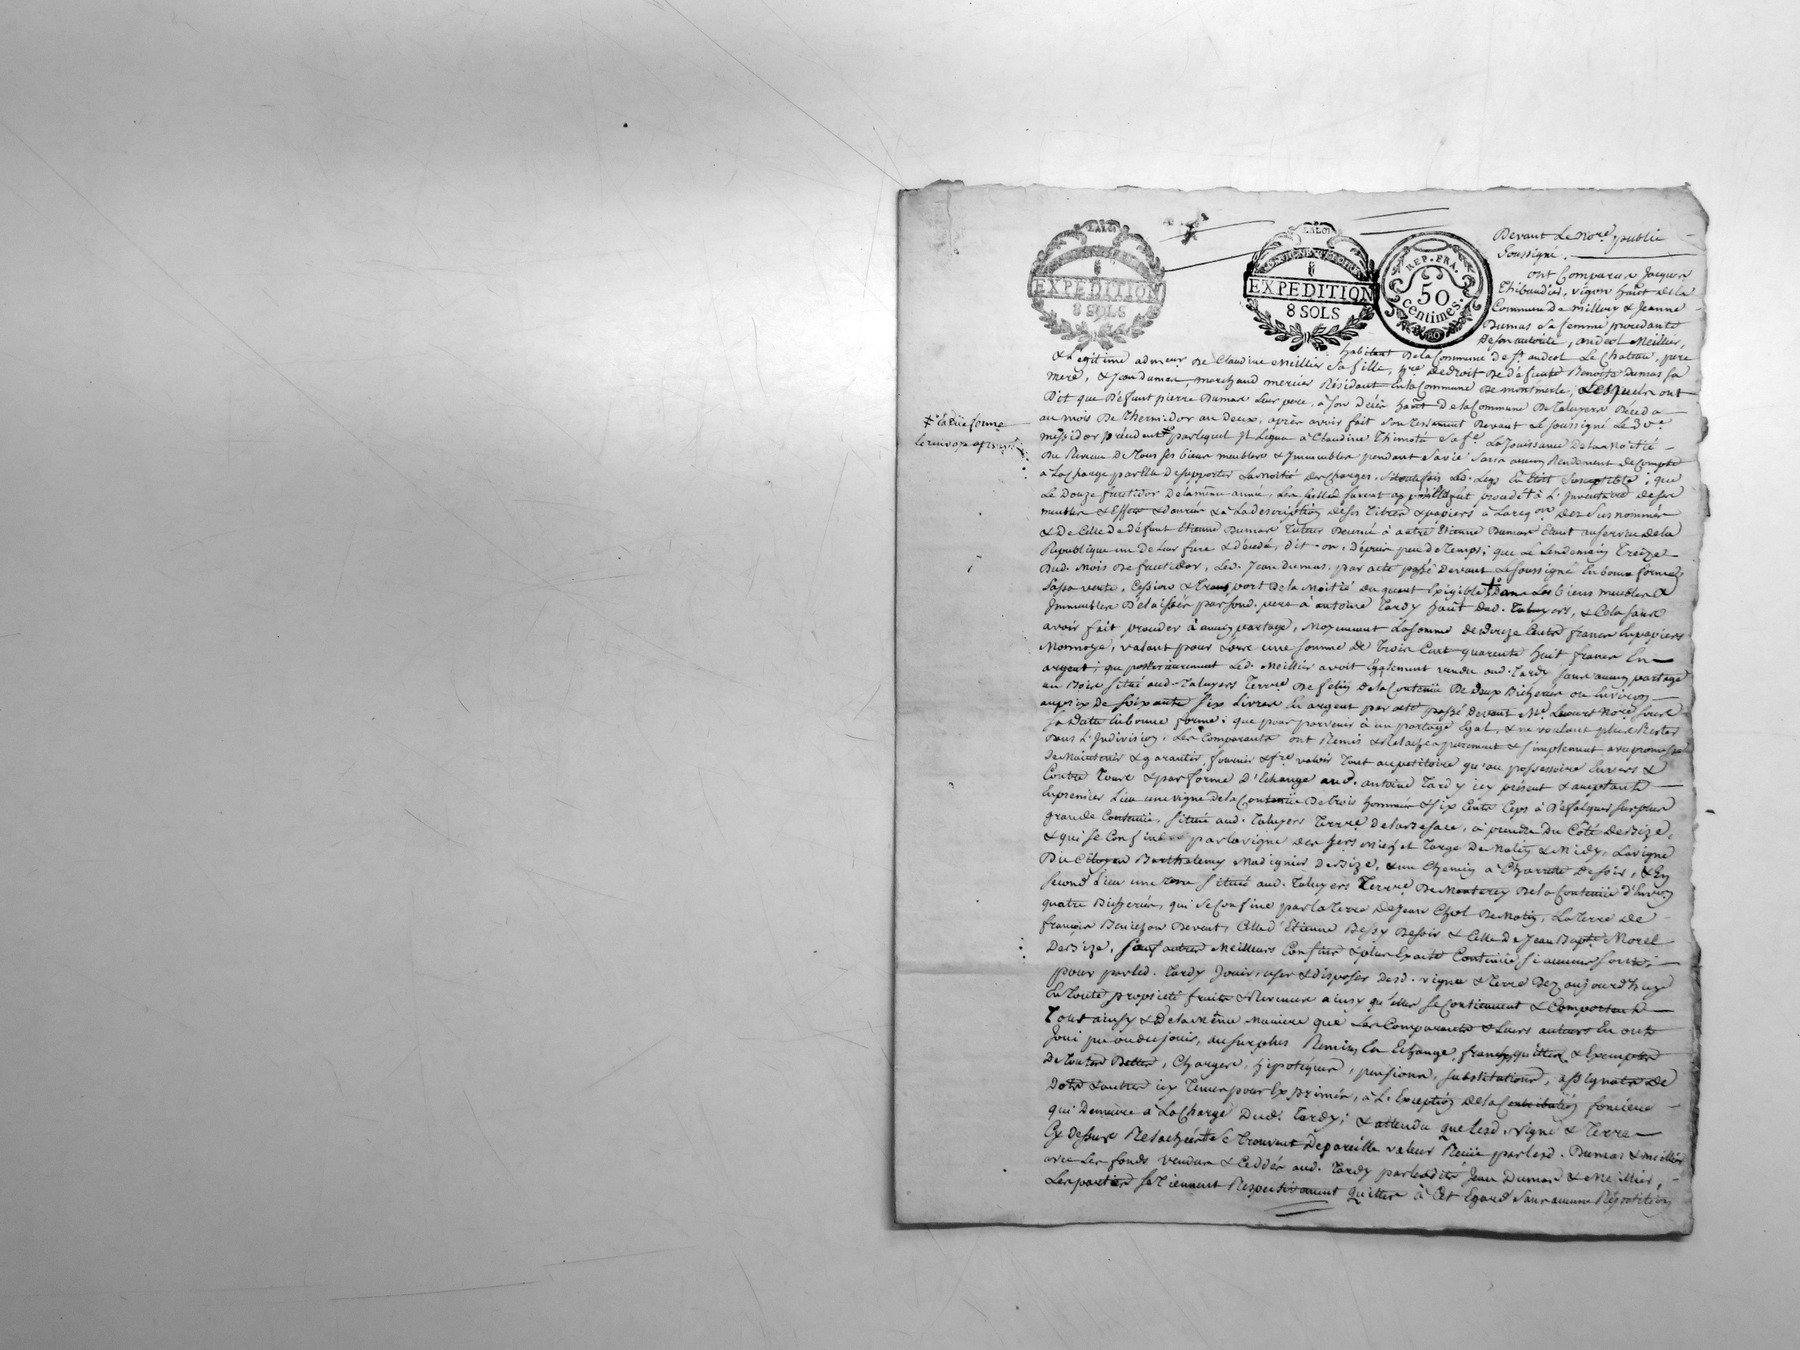 EXPEDITION
8 SOLS
EXPEDITION
8 SOLS
REP. FRA.
50
centimes.
Devant Le No.re public
Soussigné.
ont Comparus Jacques
Thibaudier, vigon ha͠nt de la
Commune de millery & Jeanne
Dumas Sa femme procedante
de son autorité, andeol Meillier,
habitant De la Commune de S.t andeol Le Chateau, pere
& Legitime adm.eur De Claudine Meillier Sa fille, De droit De défunte Benoite Dumas Sa
mere, & Jean Dumas, marchand mercier Résidant En la Commune De montmerle, Lesquels ont
Dit que Défunt pierre Dumas Leur pere, à Son décès ha͠nt De la Commune De Taluyers Décéda
au mois De thermidor an Deux, après avoir fait Son Testament Devant Le Soussigné Le 30.e
messidor précédent par lequel Il Légua à Claudine Thimoté Sa f.e La Jouissance De la moitié
Du Revenu De Tous Ses biens meubles & Immeubles pendant Sa vie Sans aucun Rendement De Compte
à La Charge par Elle De supporter La moitié des Charges, Led. Legs En étoit Susceptible; que
Le Douze fructidor De la même année, Les Scellés furent & fut procédé à L'Inventaire De ses
meubles & Effets & à La description de Ses Titres & papiers des Susnommés
& De Celle De défunt Etienne Dumas Tuteur Décerné à autre Etienne Dumas Etant au Service de la
Republique un De Leur frere & décédé, dit-on, Depuis peu de Temps; que Le Lendemain Treize
Dud. Mois De fructidor, Led. Jean Dumas, par acte passé Devant Le Soussigné En bonne forme,
passa vente, Cession & Transport De la Moitié Dans Les biens meubles &
Immeubles Délaissés par Sond. pere à antoine Tardy ha͠nt Dud. Taluyers, & Cela Sans
avoir fait proceder à aucun partage, Moyennant La Somme de Douze Cents francs En papiers
Monnoye, valant pour Lors une Somme De Trois Cent quarante huit francs En
argent; que postérieurement Led. Meillier avoit Egalement vendu aud. Tardy Sans aucun partage
un Bois Situé aud. Taluyers Terr.re De felin de la Contenue De Deux Bicherées ou Environ
au prix De Soixante Six Livres En argent par acte passé Devant M.e No.re Sous
Sa date En bonne forme; que pour parvenir à un partage Egal, & ne voulant plus Rester
Dans L'Indivision, Les Comparants ont Remis & Relaché purement & Simplement avec promesse
De Maintenir & garantir, fournir & f.re valoir Tout au petitoire qu'au possessoire Envers &
Contre Tous & par forme D'Echange aud. antoine Tardy icy présent & acceptant
En premier Lieu une vigne de la Contenüe De Trois hommées & Six Cents Ceps à Défalquer Sur plus
grande Contenüe, Située aud. Taluyers Terr.re De à prendre Du Côté De Bize,
& qui Se Confine par La vigne Des De Matin & Midy, La vigne
Du Citoyen Barthelemy Madignier De Bize, & un Chemin à Charrette De Soir, & En
Second Lieu une Terre Située aud. Taluyers Terr.re De De la Contenüe d'Environ
quatre Bicherées, qui Se Confine par La Terre De Jean De Matin, La Terre De
françois De vent, Celle D'Etienne Bessy De Soir & Celle De Jean Bapt.e Morel
De Bize, Sauf autres Meilleurs Confins & plus Exacte Contenüe Si aucuns Sont;
pour par Led. Tardy Jouir, user & disposer Desd. vigne & Terre Dez aujourd'huy
En Toute propriété fruits & Revenus ainsy qu'elles Se Contiennent & Comportent
Tout ainsy & De la Même Maniere que Les Comparants & Leurs auteurs En ont
Joui pu ou du jouir, au Surplus Remis En Echange, francs, quittes & Exempts
De Toutes Dettes, Charges, hipotèques, pensions, Substitutions, De
Dots & autres icy Tenus pour Exprimés, à L'Exception De la Contribution fonciere
qui Demeure à La Charge Dud. Tardy; & attendu que Lesd. vigne & Terre
Cy Dessus Relachées Se Trouvent De pareille valeur par Lesd. Dumas & Meillier
avec Les fonds vendus & Cedés aud. Tardy par Lesdits Jean Dumas & Meillier,
Les parties Se Tiennent Respectivement Quittes à Cet Egard Sans aucune Répétition